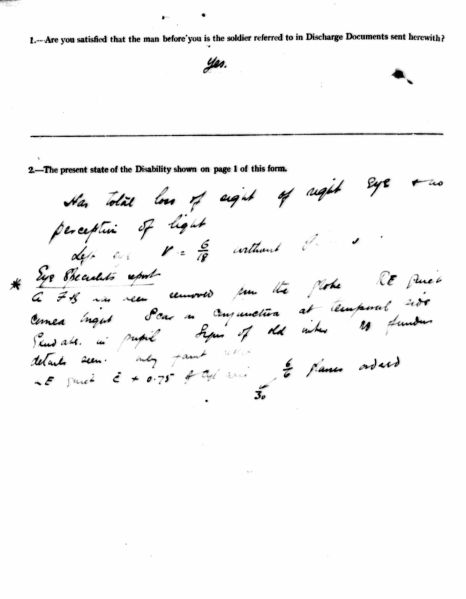 1.—Are you satisfied that the man before you is the soldier referred to in Discharge Documents sent herewith?
Yes.
2.—The present state of the Disability shown on page 1 of this form.
Has total loss of sight of right Eye & no
perception of light
Left eye V = 6/18 without
* Eye Specialists report
A F B has been removed from the globe RE quiet
cornea bright Scar in conjunction at temporal side
in pupil Signs of old iritis No fundus
details seen. only faint
E quiet c̄ + 0.75 6/6 glasses ordered
30